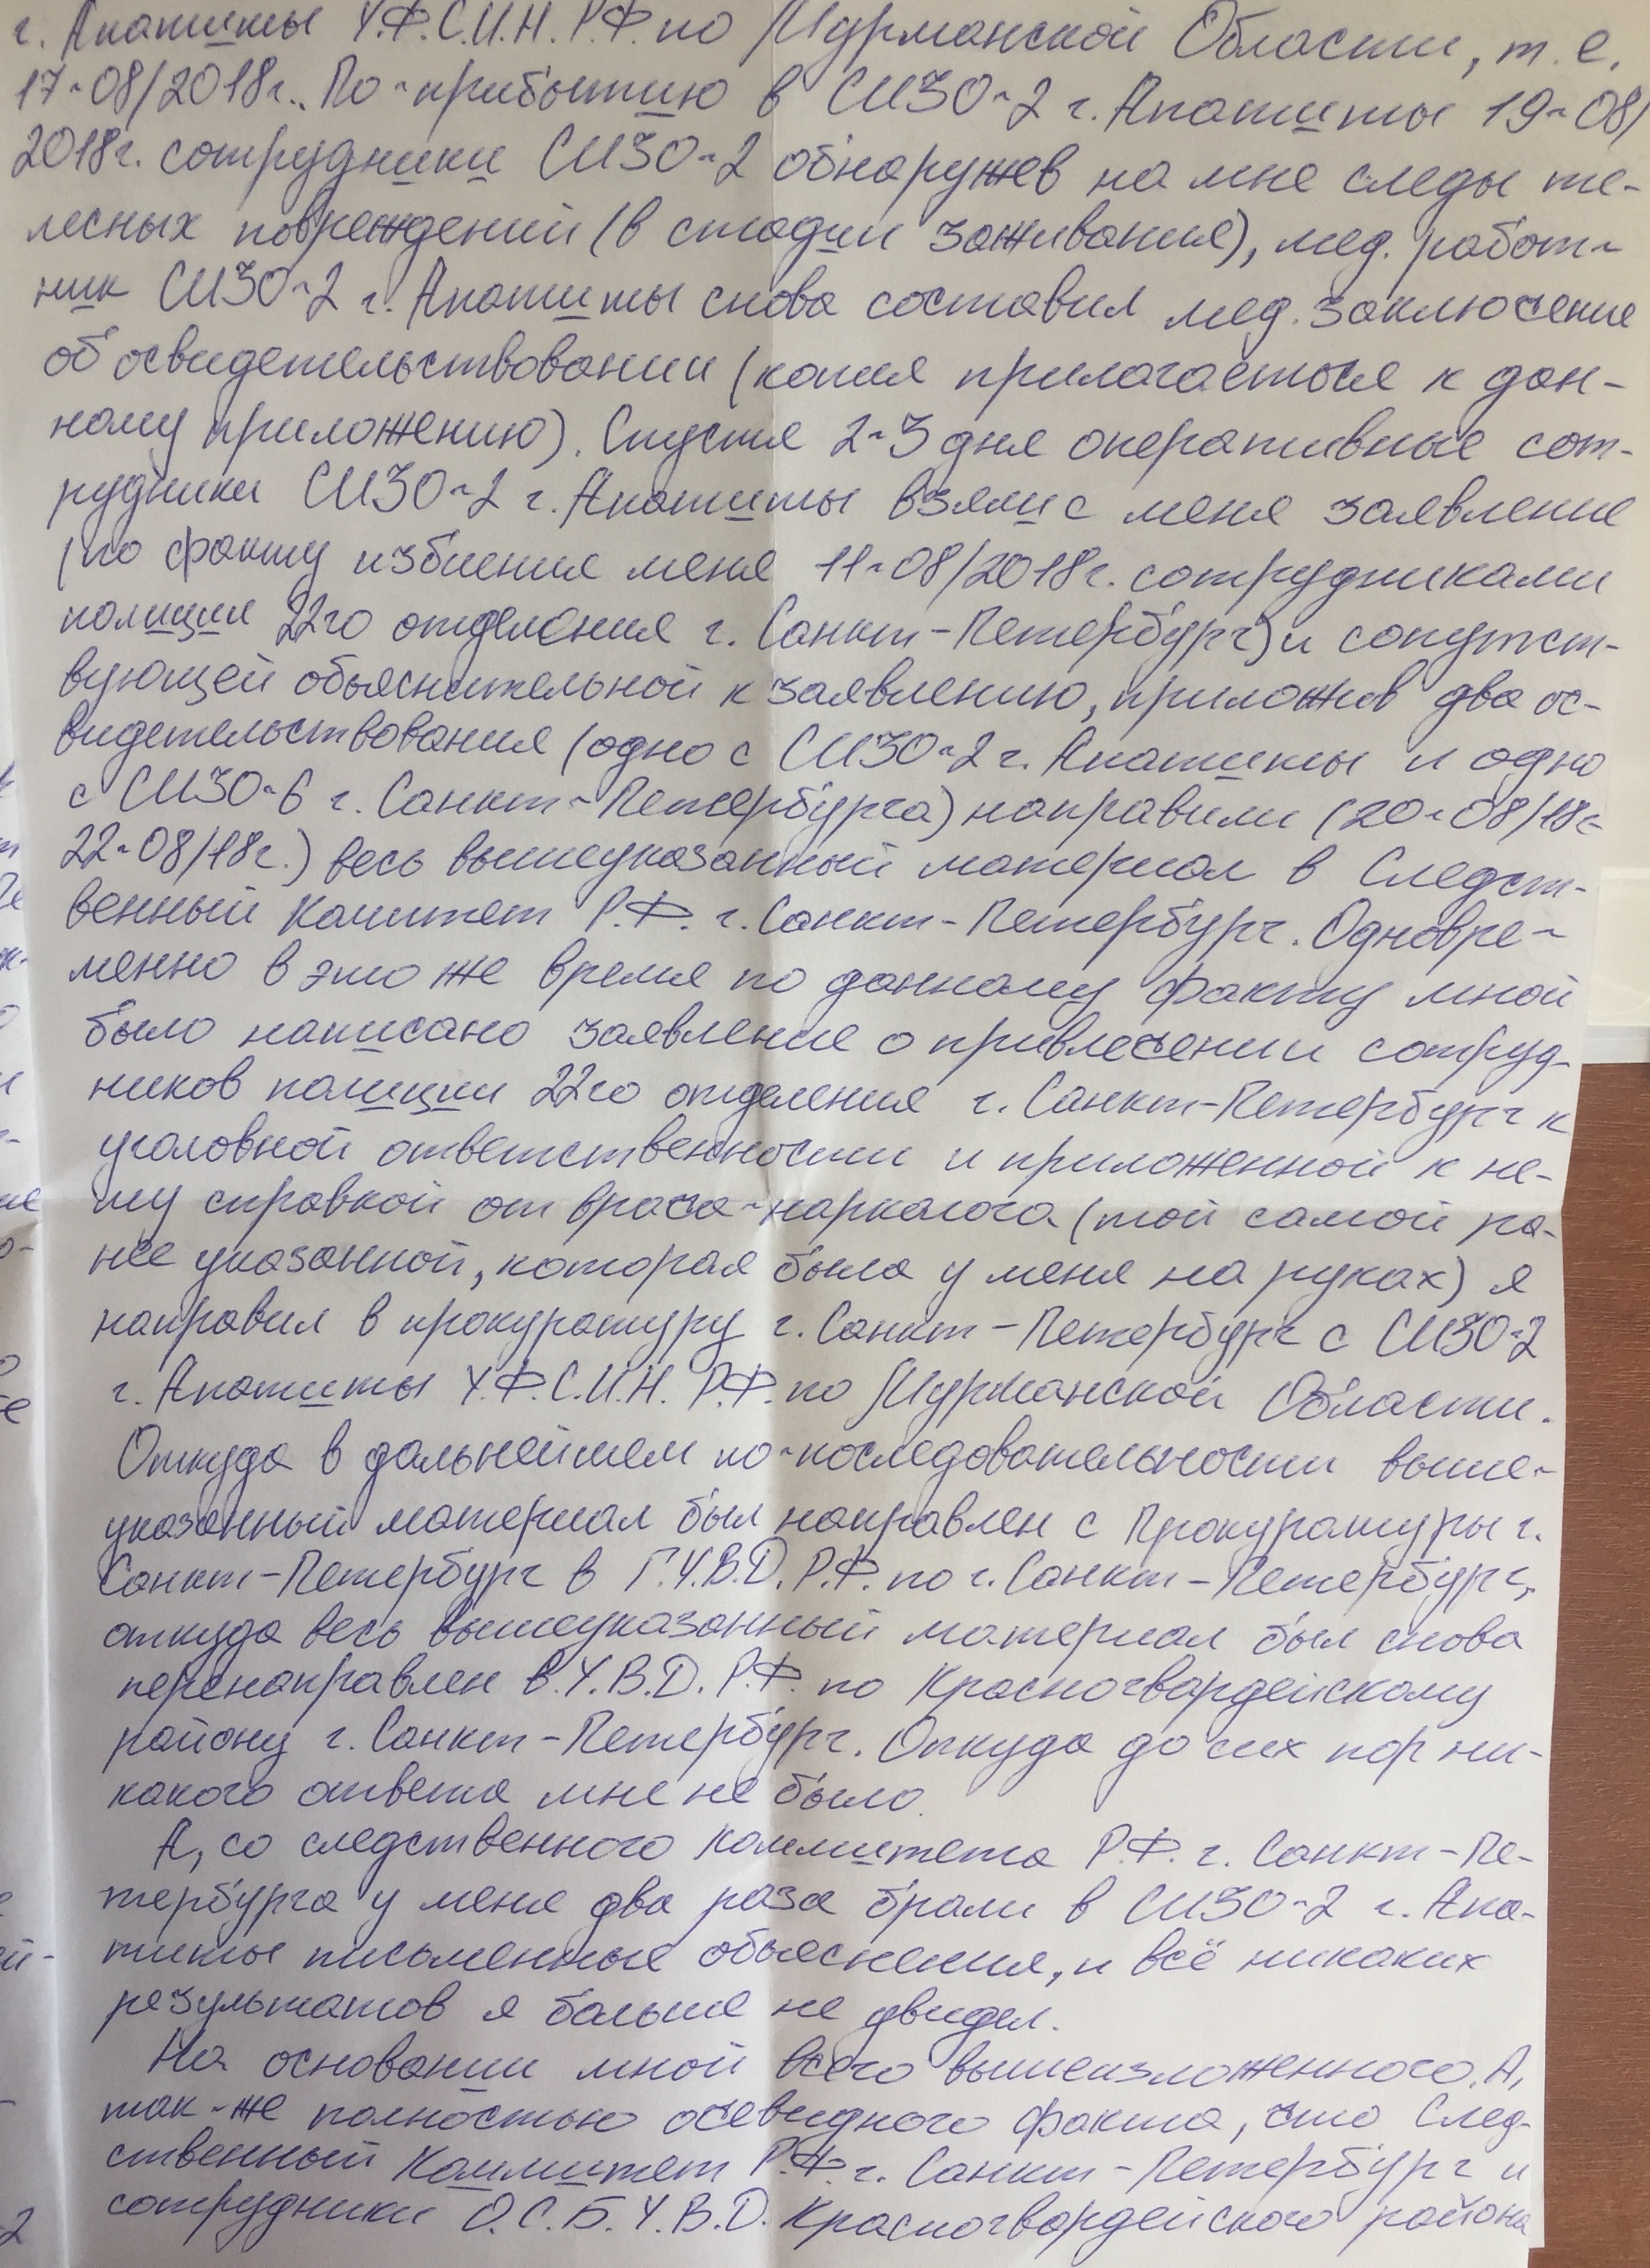 г. Апатиты У.Ф.С.И.Н. Р.Ф. по Мурманской Области, т. е.
17-08/2018г.. По-прибытию в СИЗО-2 г. Апатиты 19-08/
2018г. сотрудники СИЗО-2 обнаружев на мне следы те-
лесных повреждений (в стадии заживания), мед. работ-
ник СИЗО-2 г. Апатиты снова составил мед. заключение
об освидетельствовании (копия прилагаеться к дан-
ному приложению). Спустя 2-3 дня оперативные сот-
рудники СИЗО-2 г. Апатиты взяли с меня заявление
(по факту избиения меня 11-08/2018г. сотрудниками
полиции 22го отделения г. Санкт-Петербург) и сопутст-
вующей обьяснительной к заявлению, приложив два ос-
видетельствования (одно с СИЗО-2 г. Апатиты и одно
с СИЗО-6 г. Санкт-Петербурга) направили (20-08/18г
22-08/18г.) весь вышеуказанный материал в Следст-
венный Комитет Р.Ф. г. Санкт-Петербург. Одновре-
менно в это же время по данному факту мной
было написано заявление о привлечении сотруд-
ников полиции 22го отделения г. Санкт-Петербург к
уголовной ответственности и приложенной к не-
му справкой от врача-нарколога (той самой ра-
нее указанной, которая была у меня на руках) я
направил в прокуратуру г. Санкт-Петербург с СИЗО-2
г. Апатиты У.Ф.С.И.Н. Р.Ф. по Мурманской Области.
Откуда в дальнейшем по-последовательности выше-
указанный материал был направлен с Прокуратуры г.
Санкт-Петербург в Г.У.В.D. Р.Ф. по г. Санкт-Петербург,
откуда весь вышеуказанный материал был снова
перенаправлен в У.В.D. Р.Ф. по Красногвардейскому
району г. Санкт-Петербург. Откуда до сих пор ни-
какого ответа мне не было.
А, со следственного Коммитета Р.Ф. г. Санкт-Пе-
тербурга у меня два раза брали в СИЗО-2 г. Апа-
титы письменные обьяснения, и всё никаких
результатов я больше не двидел.
На основании мной всего вышеизложенного. А,
так-же полностью очевидного факта, что След-
ственный Коммитет Р.Ф. г. Санкт-Петербург и
сотрудники О.С.Б. У.В.D. Красногвардейского района